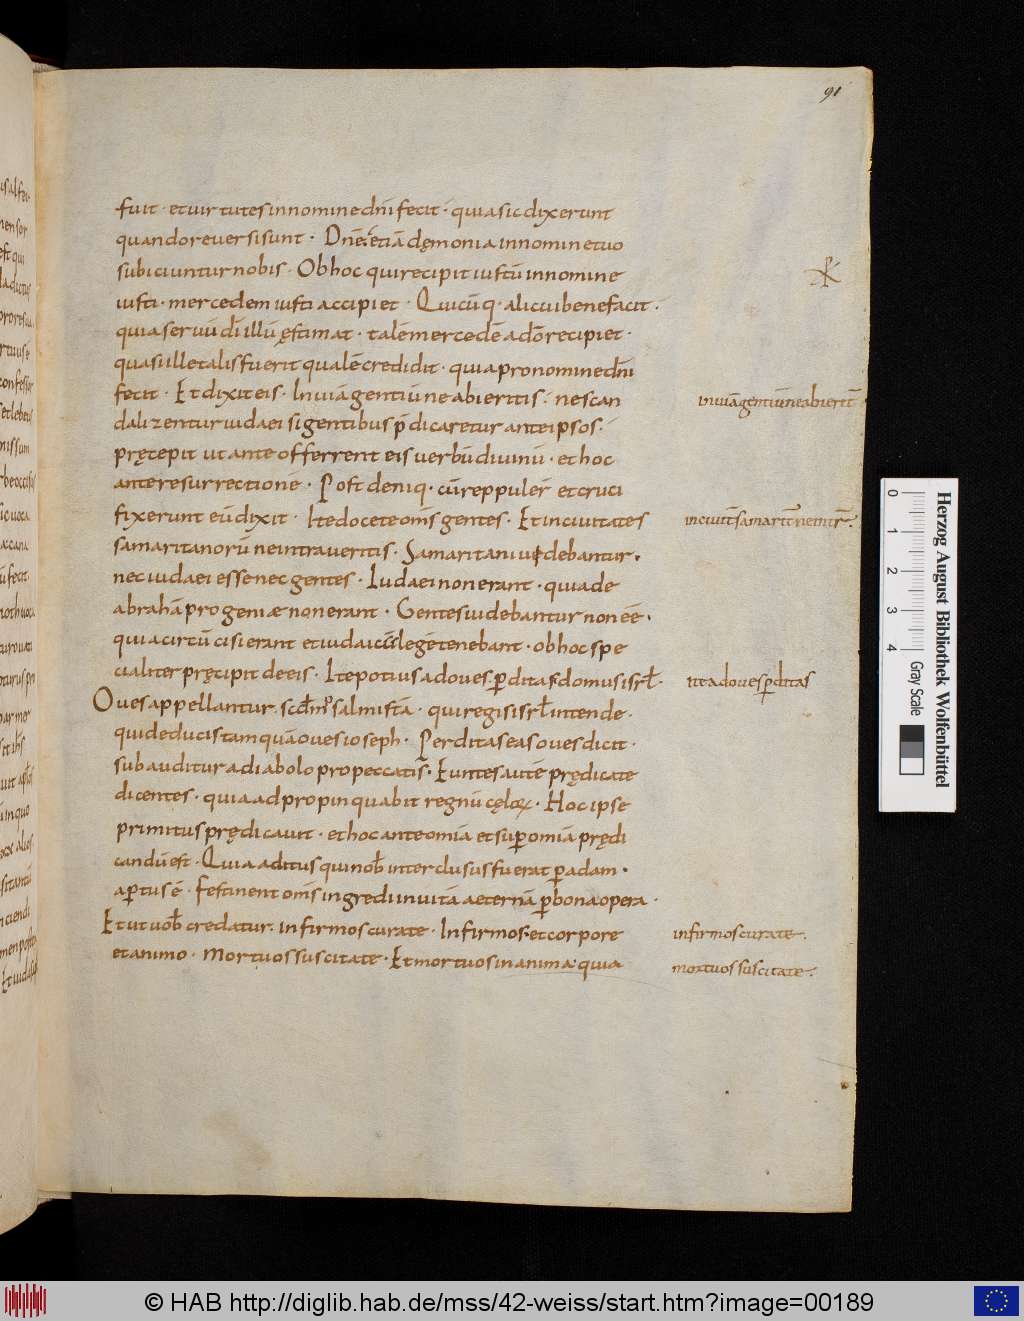 91
fuit · et uirtutes in nomine dn̄i fecit · quia sic dixerunt
quando reuersi sunt · Dn̄e · etiā dęmonia in nomine tuo
subiciuntur nobis · Ob hoc qui recipit iustū in nomine
iusti · mercedem iusti accipiet · Quicūq · alicui benefacit ·
quia seruū dī illū ęstimat · talē mercedē a dō recipiet ·
quasi ille talis fuerit qualē credidit · quia pro nomine dn̄i
fecit · Et dixit eis · In uiā gentiū ne abieritis · ne scan
in uiā gentiū ne abierit̄
dalizentur iudaei si gentibus p̄dicaretur ante ipsos ·
pręcepit ut ante offerrent eis uerbū diuinū · et hoc
ante resurrectione · Post deniq · cū reppuler̄ et cruci
fixerunt eū dixit · Ite docete om̄s gentes · Et in ciuitates
samaritanorū ne intraueritis · Samaritani uidebantur ·
nec iudaei esse nec gentes · Iudaei non erant · quia de
abrahā progeniæ non erant · Gentes uidebantur non eē ·
quia circūcisi erant et iudaicū legē tenebant · ob hoc spe
cialiter pręcipit de eis · Ite potius ad oues ꝑditas domus isrł ·
ite ad oues ꝑditas
Oues appellantur scd̄m salmistā · qui regis isrł intende ·
qui deducis tamquā oues ioseph · Perditas eas oues dicit ·
subauditur a diabolo pro peccatis · Euntes autē prędicate
dicentes · quia adpropinquabit regnū cęloꝝ · Hoc ipse
primitus prędicauit · et hoc ante omīa et suꝑ omīa prędi
candū est · Quia aditus qui nob̄ interclusus fuerat ꝑ adam ·
aꝑtus ē · Festinent om̄s ingredi in uitā aeternā ꝑ bona opera ·
Et ut uob̄ credatur · infirmos curate · Infirmos et corpore
infirmos curate ·
et animo · Mortuos suscitate · Et mortuos in animæ quia
mortuos suscitate ·
Herzog August Bibliothek Wolfenbüttel
0 1 2 3 4 Gray Scale
© HAB http://diglib.hab.de/mss/42-weiss/start.htm?image=00189